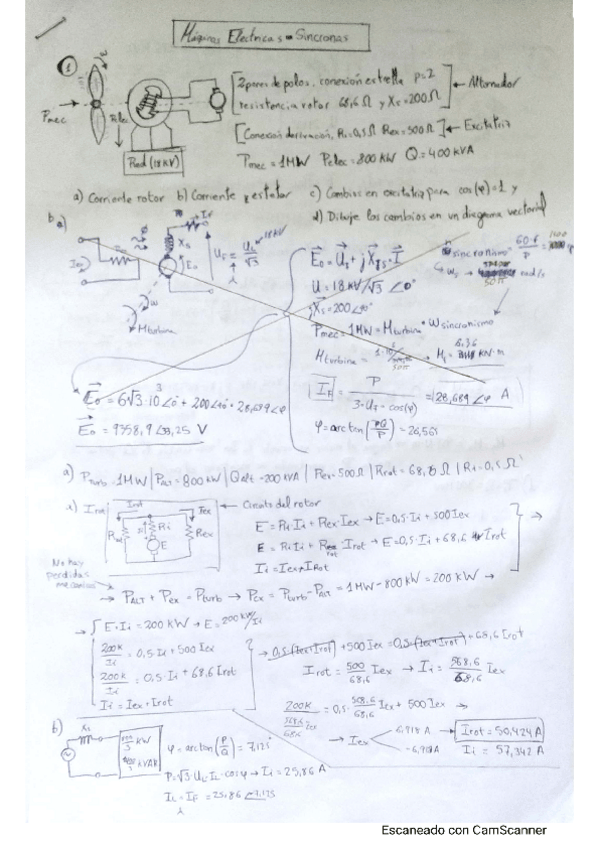 Máquinas Electricas - Sincronas
① 2 pares de polos, conexión estrella p=2
resistencia rotor 68,6 Ω y Xs=200 Ω ← Alternador
[Conexión derivación, Ri=0,5 Ω Rex=500 Ω] ← Excitatriz
Pmec
Pelec
Red (18 KV)
Pmec = 1MW Pelec = 800 kW Q = 400 KVA
a) Corriente rotor b) Corriente estator c) Cambios en excitatriz para cos(φ)=1 y
d) Dibuje los cambios en un diagrama vectorial
Xs
Eo
Us = Us/√3
18KV
Mturbina
Eo = Us + j Xs · I
U = 18KV/√3 ∠0°
jXs = 200∠90°
Pmec = 1MW = Mturbina · Wsincronismo
60·f/p
rad/s
KN·m
IF = P / 3·Us·cos(φ) = 28,689 ∠φ A
φ = arctan(Q/P) = 26,565
Eo = 6√3·10³∠0° + 200∠90° · 28,689∠φ
Eo = 9358,9∠33,25 V
a) Pturb = 1MW | PALT = 800 KW | Qalt = 200 KVA | Rex = 500 Ω | Rrot = 68,6 Ω | Ri = 0,5 Ω
Irot
Iex
Rrot
Ri
Rex
E
← Circuito del rotor
E = Ri·Ii + Rex·Iex → E = 0,5·Ii + 500 Iex
E = Ri·Ii + Rrot·Irot → E = 0,5·Ii + 68,6 Irot
Ii = Iex + IRot
No hay
perdidas
mecanicas
→ PALT + Pex = Pturb → Pex = Pturb - PALT = 1MW - 800 kW = 200 KW →
→ E·Ii = 200 KW → E = 200 kW/Ii
200K/Ii = 0,5·Ii + 500 Iex
200K/Ii = 0,5·Ii + 68,6 Irot
Ii = Iex + Irot
→ 0,5·(Iex+Irot) + 500 Iex = 0,5·(Iex+Irot) + 68,6 Irot
Irot = 500/68,6 Iex → Ii = 568,6/68,6 Iex
200K / (568,6/68,6 Iex) = 0,5· 568,6/68,6 Iex + 500 Iex →
→ Iex 6,918 A → Irot = 50,424 A
-6,918 A
Ii = 57,342 A
b) Xs
KW
KVAR
φ = arctan(P/Q) = 7,125°
P = √3·UL·IL·cosφ → Ii = 25,86 A
IL = IF = 25,86∠7,125
Escaneado con CamScanner